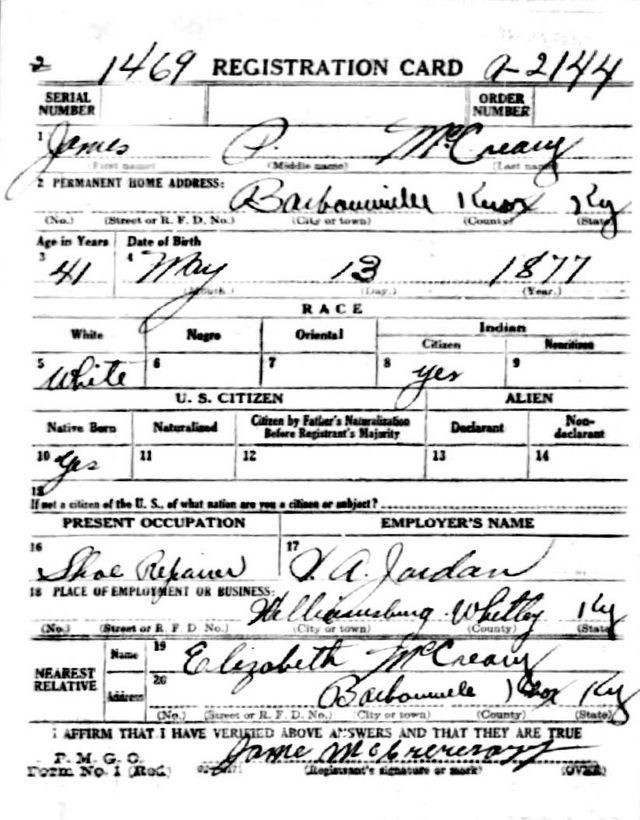 2 1469 REGISTRATION CARD a-2144
SERIAL NUMBER ORDER NUMBER
1 James P. McCreary
(First name) (Middle name) (Last name)
2 PERMANENT HOME ADDRESS: Barbourville Knox Ky
(No.) (Street or R. F. D. No.) (City or town) (County) (State)
Age in Years Date of Birth
3 41 4 May 13 1877
(Month.) (Day.) (Year.)
RACE
White Negro Oriental Indian
Citizen Noncitizen
5 White 6 7 8 yes 9
U. S. CITIZEN ALIEN
Native Born Naturalized Citizen by Father's Naturalization Before Registrant's Majority Declarant Non-declarant
10 Yes 11 12 13 14
15
If not a citizen of the U. S., of what nation are you a citizen or subject?
PRESENT OCCUPATION EMPLOYER'S NAME
16 Shoe Repairer 17 A. Jordan
18 PLACE OF EMPLOYMENT OR BUSINESS: Williamsburg Whitley Ky
(No.) (Street or R. F. D. No.) (City or town) (County) (State)
NEAREST RELATIVE Name 19 Elizabeth McCreary
Address 20 Barbourville Knox Ky
(No.) (Street or R. F. D. No.) (City or town) (County) (State)
I AFFIRM THAT I HAVE VERIFIED ABOVE ANSWERS AND THAT THEY ARE TRUE
P. M. G. O.
Form No. 1 (Red) (Registrant's signature or mark) (OVER)